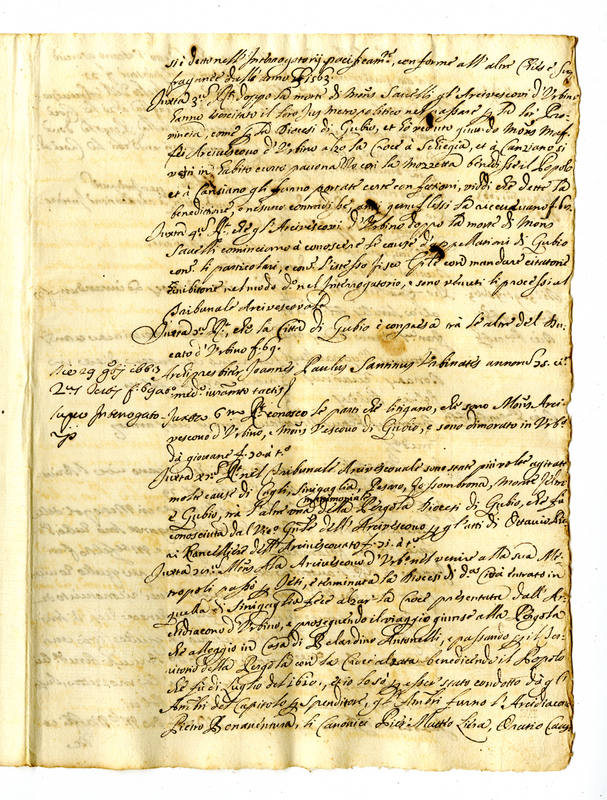 si è detto nell'Interrogatorij pacificam.te, conforme all'altre Chiese Suf
fraganee dall'anno 1563.
Juxta 3.um doppo la morte di Mons. Savelli gl'Arcivescovi d'Urbino
hanno esercitato il loro Jus metropolitico nel passare p la lor Pro
vincia, come p la Diocesi di Gubio, et hò veduto quando Mons. Maf
fei Arcivescovo d'Urbino alzò la Croce à Scheggia, et à Canziano si
vestì in habito curto pavonazzo con la mozzetta benedisse il Popolo
et à Canziano gli furno portate certe confezioni, viddi che dette la
benedizione, e nesuno contradisse, anzi genuflessi la ricevevano f. 67.
Juxta 4.um che gl'Arcivescovi d'Urbino doppo la morte di Mons.
Savelli cominciorno à conoscere le cause d'appellationi di Gubio
con li particolari, e con l'istesso fisco con mandare citatorie
inibitorie nel modo d.o nel Interrogatorio, e sono venuti li processi al
Tribunale Arcivescovale
Juxta che la Città di Gubio è compresa trà le altre del Du
cato d'Urbino f. 69.
Die 29 1663 Archipresbiter Joannes Paulus Santinus Urbinates annorum 75
f. 69 tactis
Super Interrogato- Juxta 6.um conosco le parti che litigano, che sono Mons. Arci
vescovo d'Urbino, e Mons. Vescovo di Gubio, e sono dimorato in Urb.o
da giovane f. 70
Juxta nel Tribunale Arcivescovale sono state più volte agitate
molte cause di Cagli, Sinigaglia, Pesaro, Fossombrona, Monte Feltro
e Gubio, trà l'altre una matrimoniale della Pergola Diocesi di Gubio, che fù
conosciuta dal Vic.o Gn̄le dell'Arcivescovo p gl'atti di Ottavio
Cancelliere dell'Arcivescovato f. 71.
Juxta Arcivescovo d'Urb.o nel venire alla sua Me
tropoli passò p Jesi, e terminata la Diocesi di d.a Città entrato in
quella di Sinigaglia fece alzar la Croce presentata dall'Ar
chidiacono d'Urbino, e proseguendo il viaggio giunse alla Pergola
che alloggiò in Casa di Belardino Antonelli, e passando p il Ter
ritorio della Pergola con la Croce alzata benedicendo il Popolo
che fù di Luglio del 1610, e io lo sò p esser stato condotto da gl'
Amb.ri del Capitolo p Spenditore, gl'Amb.ri furno l'Arcidiacono
Pietro Bonaventura, li Canonici Pier Matteo Orazio